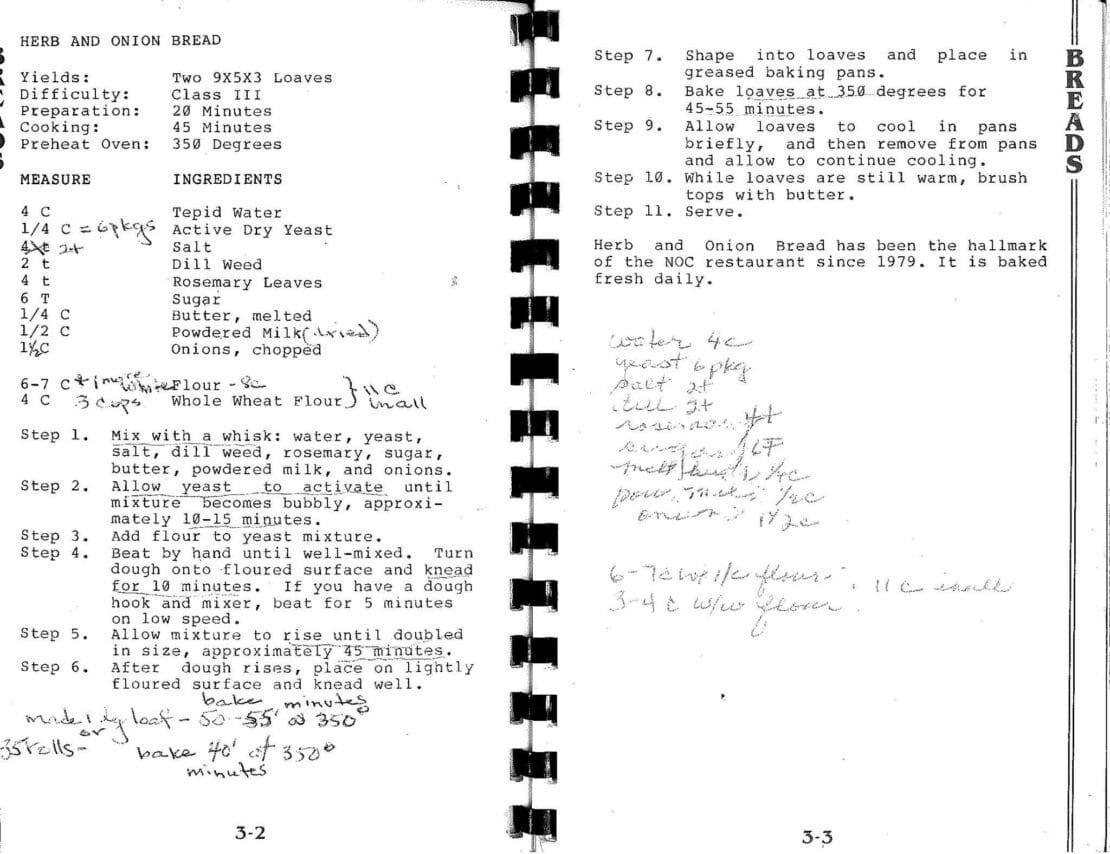 HERB AND ONION BREAD
Yields: Two 9X5X3 Loaves
Difficulty: Class III
Preparation: 20 Minutes
Cooking: 45 Minutes
Preheat Oven: 350 Degrees
MEASURE INGREDIENTS
4 C Tepid Water
1/4 C = 6pkgs Active Dry Yeast
4 t 2t Salt
2 t Dill Weed
4 t Rosemary Leaves
6 T Sugar
1/4 C Butter, melted
1/2 C Powdered Milk (dried)
1½C Onions, chopped
6-7 C + 1 more White Flour - 8c } 11c
4 C 3 cups Whole Wheat Flour } in all
Step 1. Mix with a whisk: water, yeast,
salt, dill weed, rosemary, sugar,
butter, powdered milk, and onions.
Step 2. Allow yeast to activate until
mixture becomes bubbly, approxi-
mately 10-15 minutes.
Step 3. Add flour to yeast mixture.
Step 4. Beat by hand until well-mixed. Turn
dough onto floured surface and knead
for 10 minutes. If you have a dough
hook and mixer, beat for 5 minutes
on low speed.
Step 5. Allow mixture to rise until doubled
in size, approximately 45 minutes.
Step 6. After dough rises, place on lightly
floured surface and knead well.
bake minutes
made 1 lg loaf - 50-55' @ 350°
or
35 rolls- bake 40' at 350°
minutes
3-2
Step 7. Shape into loaves and place in
greased baking pans.
Step 8. Bake loaves at 350 degrees for
45-55 minutes.
Step 9. Allow loaves to cool in pans
briefly, and then remove from pans
and allow to continue cooling.
Step 10. While loaves are still warm, brush
tops with butter.
Step 11. Serve.
Herb and Onion Bread has been the hallmark
of the NOC restaurant since 1979. It is baked
fresh daily.
water 4c
yeast 6 pkg
salt 2t
dill 2t
rosemary 4t
sugar 6T
melt butt 1/4c
pow. milk 1/2c
onion 1 1/2c
6-7c flour
11 c in all
3-4 c w/w flour
3-3
BREADS